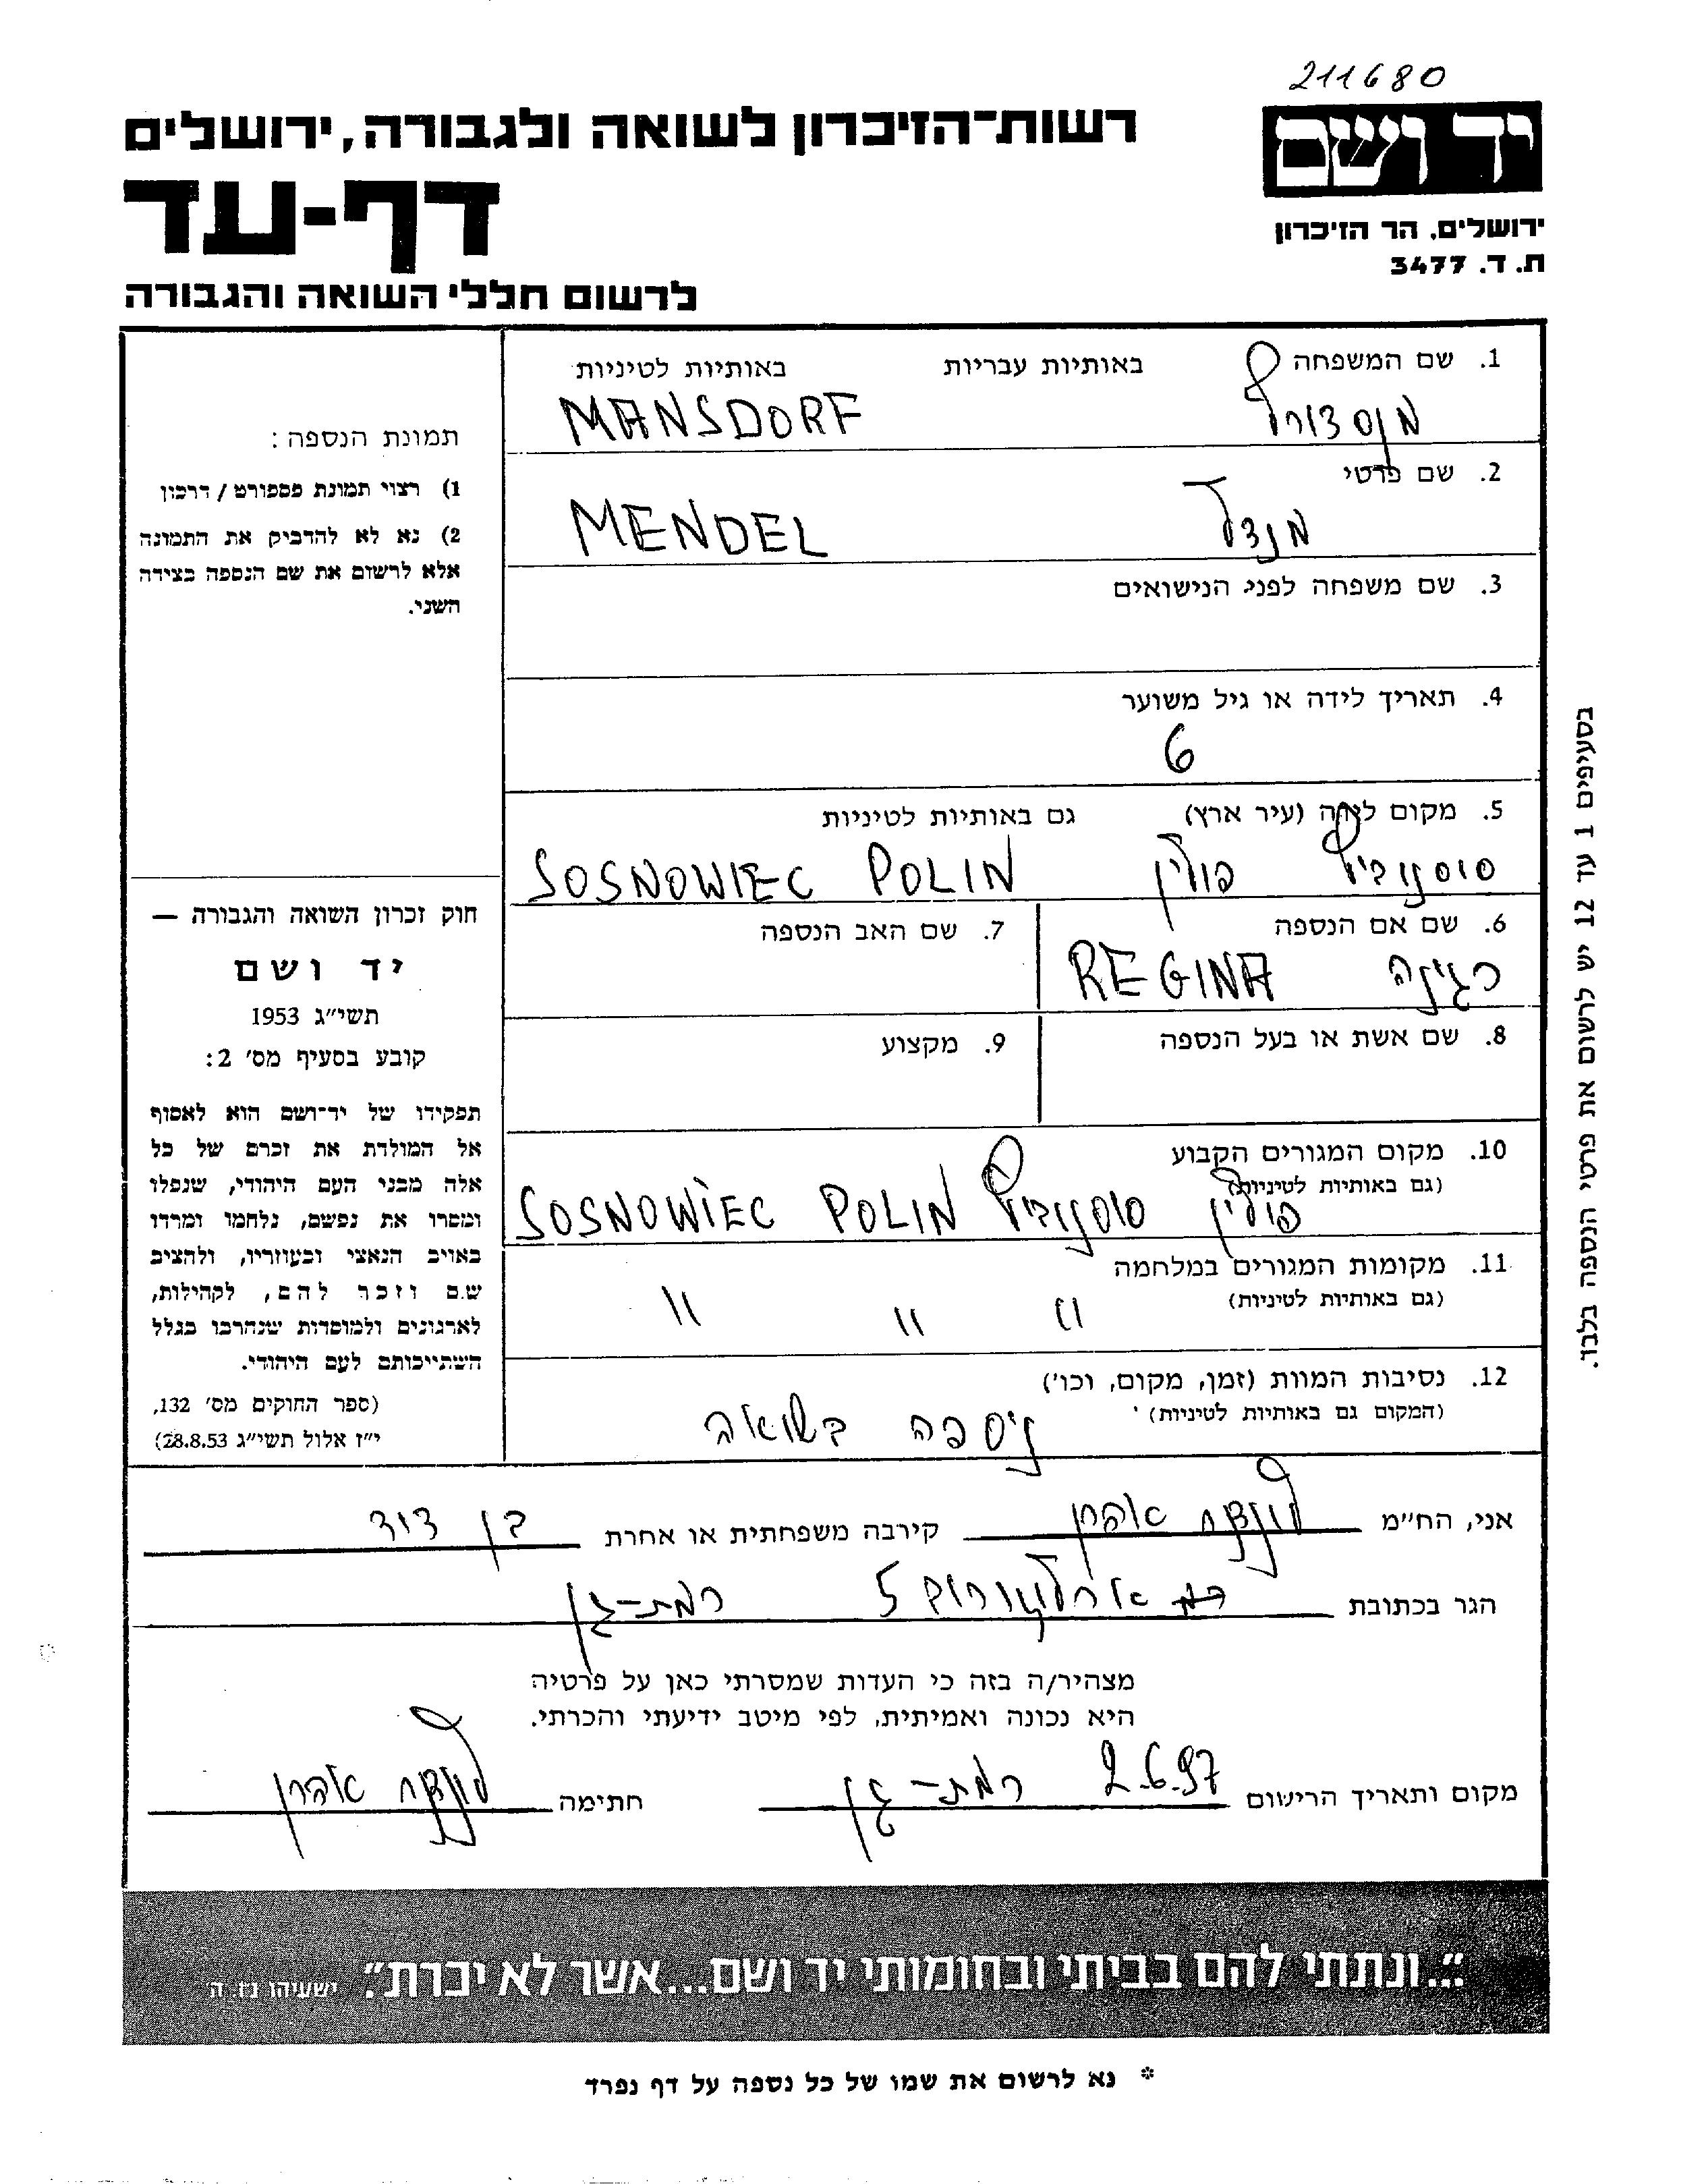 211680
יד ושם
ירושלים, הר הזיכרון
ת. ד. 3477
רשות-הזיכרון לשואה ולגבורה, ירושלים
דף-עד
לרשום חללי השואה והגבורה
1. שם המשפחה באותיות עבריות באותיות לטיניות
מנסדורף MANSDORF
2. שם פרטי
מנדל MENDEL
3. שם משפחה לפני הנישואים
4. תאריך לידה או גיל משוער
6
5. מקום לידה (עיר ארץ) גם באותיות לטיניות
סוסנוביץ פולין SOSNOWIEC POLIN
6. שם אם הנספה
רגינה REGINA
7. שם האב הנספה
8. שם אשת או בעל הנספה
9. מקצוע
10. מקום המגורים הקבוע
(גם באותיות לטיניות)
פולין סוסנוביץ SOSNOWIEC POLIN
11. מקומות המגורים במלחמה
(גם באותיות לטיניות)
" " "
12. נסיבות המוות (זמן, מקום, וכו')
(המקום גם באותיות לטיניות)
ניספה בשואה
תמונת הנספה:
1) רצוי תמונת פספורט / דרכון
2) נא לא להדביק את התמונה
אלא לרשום את שם הנספה בצידה
השני.
חוק זכרון השואה והגבורה —
יד ושם
תשי"ג 1953
קובע בסעיף מס' 2:
תפקידו של יד-ושם הוא לאסוף
אל המולדת את זכרם של כל
אלה מבני העם היהודי, שנפלו
ומסרו את נפשם, נלחמו ומרדו
באויב הנאצי ובעוזריו, ולהציב
שם וזכר להם, לקהילות,
לארגונים ולמוסדות שנהרבו בגלל
השתייכותם לעם היהודי.
(ספר החוקים מס' 132,
י"ז אלול תשי"ג 28.8.53)
בסעיפים 1 עד 12 יש לרשום את פרטי הנספה בלבד.
אני, הח"מ אהרן קירבה משפחתית או אחרת בן דוד
הגר בכתובת ארלוזורוב 5 רמת-גן
מצהיר/ה בזה כי העדות שמסרתי כאן על פרטיה
היא נכונה ואמיתית, לפי מיטב ידיעתי והכרתי.
מקום ותאריך הרישום 2.6.97 רמת-גן חתימה אהרן
"...ונתתי להם בביתי ובחומותי יד ושם...אשר לא יכרת." ישעיהו נו, ה'
* נא לרשום את שמו של כל נספה על דף נפרד